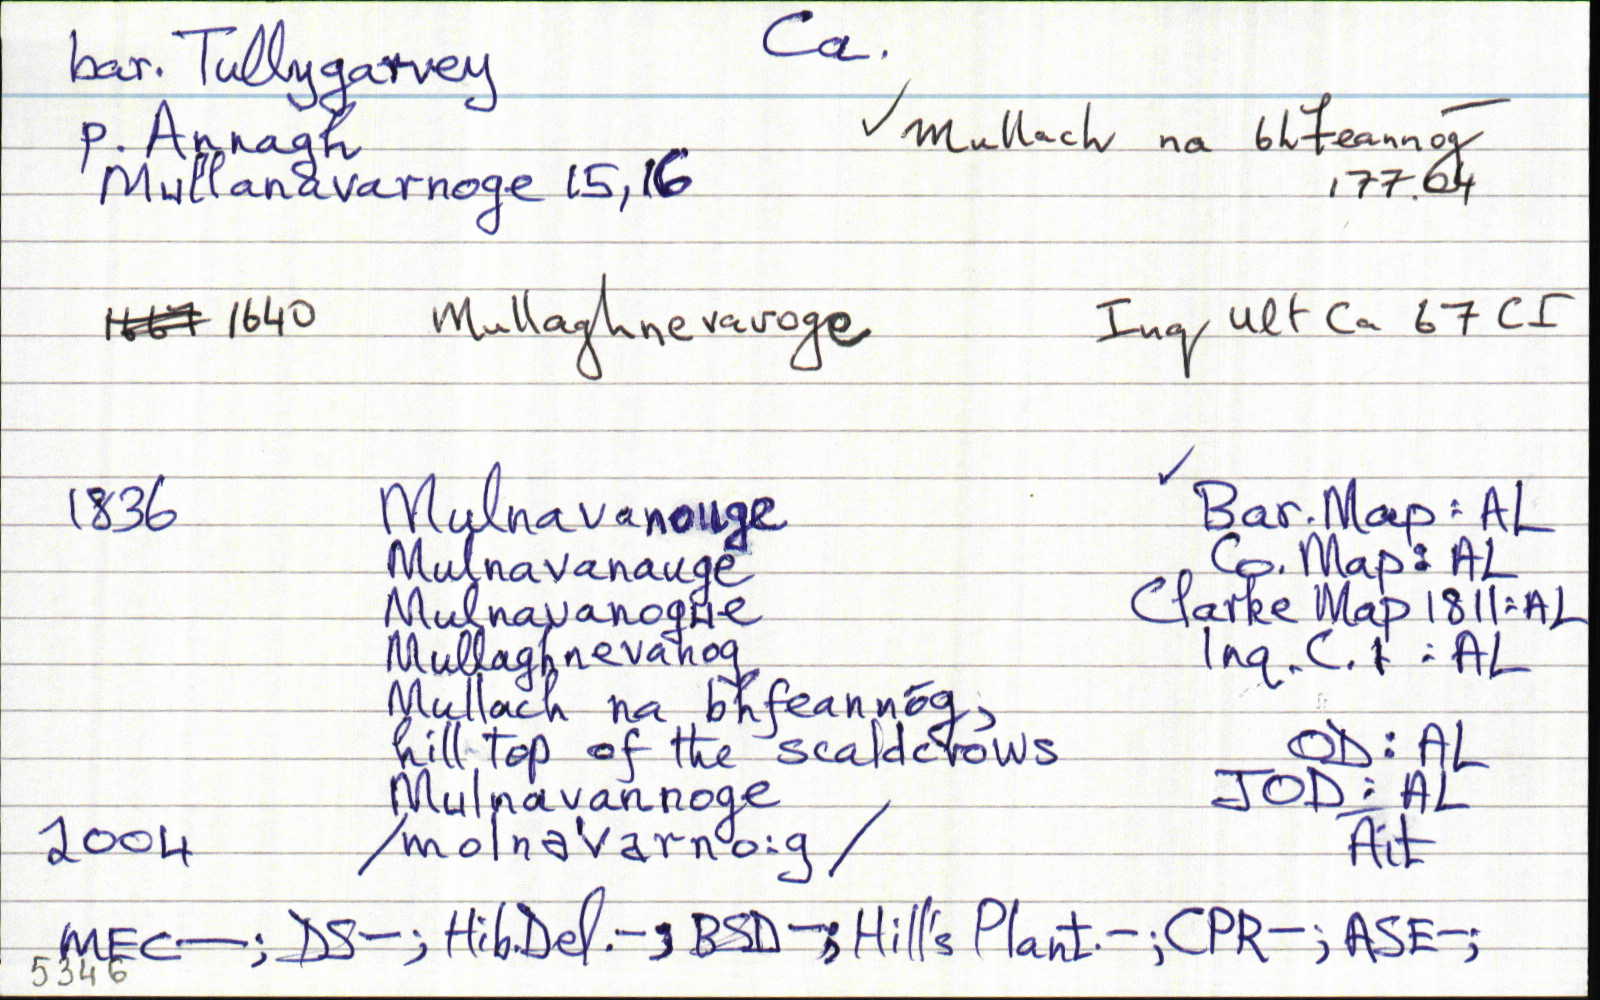 bar. Tullygarvey Ca.
p. Annagh ✓ Mullach na bhfeannóg
Mullanavarnoge 15,16 177.64
1640 Mullaghnevaroge Inq Ult Ca 67 CI
✓
1836 Mulnavanouge Bar. Map : AL
Mulnavanauge Co. Map : AL
Mulnavanogue Clarke Map 1811 : AL
Mullaghnevanog Inq. C. I : AL
Mullach na bhfeannóg,
hill top of the scaldcrows OD : AL
Mulnavannoge JOD : AL
2004 /molnəˈvarno:g/ Áit
MEC—; DS—; Hib.Del.—; BSD—; Hill's Plant.—; CPR—; ASE—;
5346